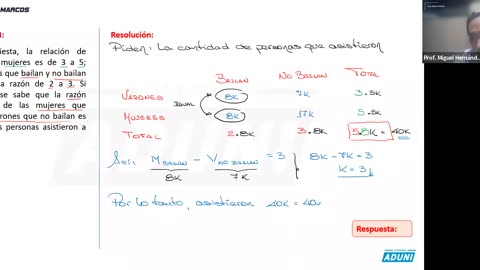 MARCOS
Prof. Miguel Hernánd...
iesta, la relación de
mujeres es de 3 a 5;
s que bailan y no bailan
a razón de 2 a 3. Si
se sabe que la razón
de las mujeres que
rones que no bailan es
s personas asistieron a
Resolución:
Piden: La cantidad de personas que asistieron
BAILAN NO BAILAN TOTAL
VARONES 8K 7K 3.5K
IGUAL
MUJERES 8K 17K 5.5K
TOTAL 2.8K 3.8K 5.8K = 40K
M BAILAN - V NO BAILAN = 3 8K - 7K = 3
8K 7K K = 3
Por lo tanto, asistieron 40K = 40
Respuesta:
ADUNI